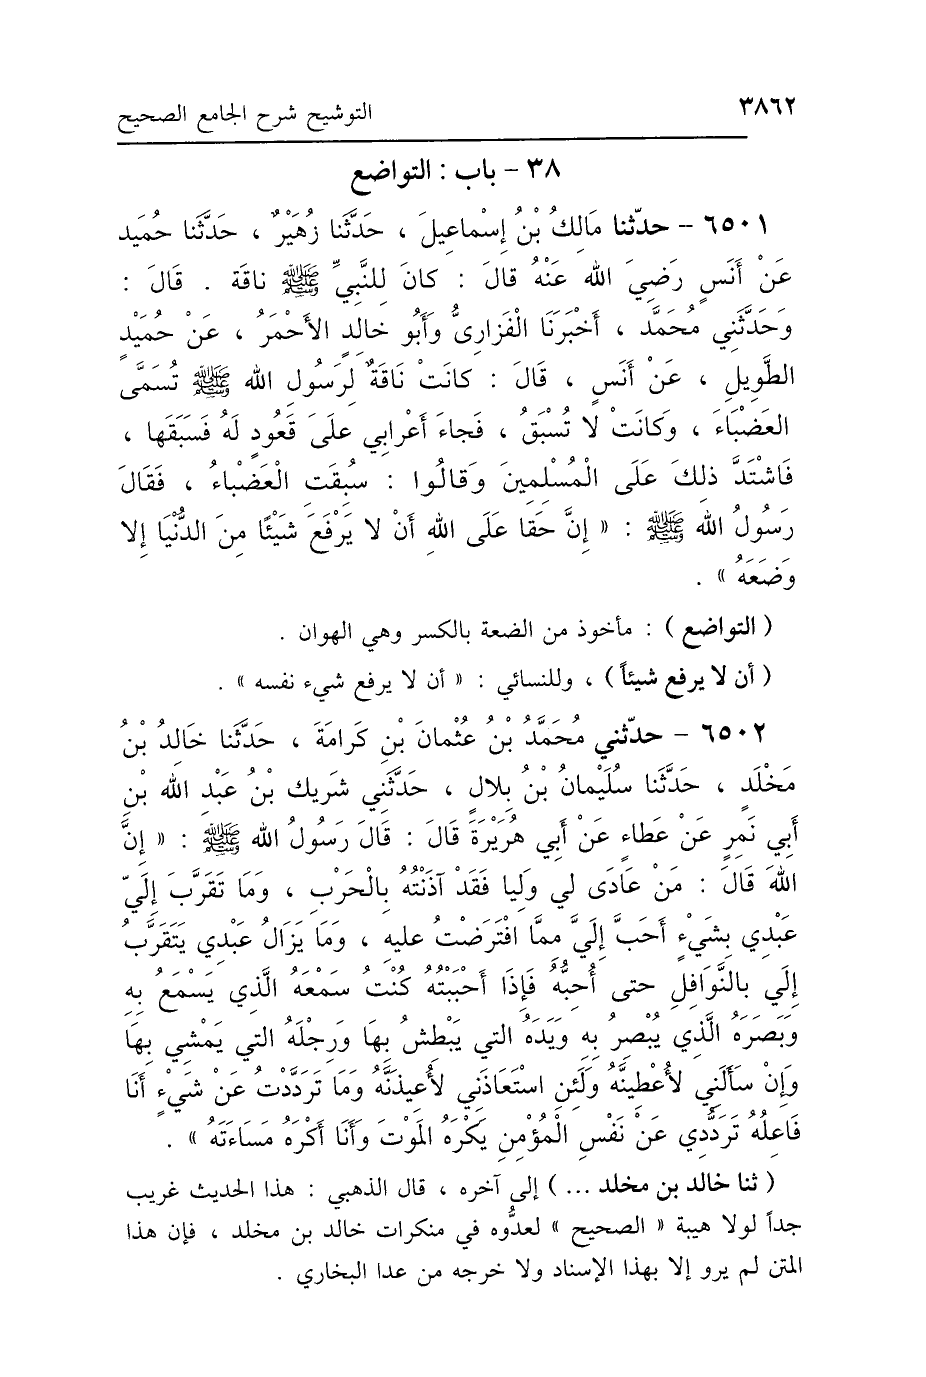 ٣٨٦٢ التوشيح شرح الجامع الصحيح
٣٨ - باب : التواضع
٦٥٠١ - حدّثنا مَالِكُ بْنُ إِسْماعِيلَ ، حَدَّثَنا زُهَيْرٌ ، حَدَّثَنا حُمَيد
عَنْ أَنَسٍ رَضِيَ الله عَنْهُ قالَ : كانَ لِلنَّبِيِّ ﷺ ناقَة . قَالَ :
وَحَدَّثَنِي مُحَمَّد ، أَخْبَرَنَا الْفَزارِىُّ وَأَبُو خالِدٍ الأَحْمَرُ ، عَنْ حُمَيْدٍ
الطَّوِيلِ ، عَنْ أَنَسٍ ، قَالَ : كانَتْ نَاقَةٌ لِرَسُولِ الله ﷺ تُسَمَّى
العَضْبَاءَ ، وَكانَتْ لا تُسْبَقُ ، فَجاءَ أَعْرابي علَىَ قَعُودٍ لَهُ فَسَبَقَها ،
فَاشْتَدَّ ذلِكَ عَلَى الْمُسْلِمينَ وَقالُوا : سُبِقَتِ الْعَضْباءُ ، فَقَالَ
رَسُولُ الله ﷺ : « إِنَّ حَقا عَلَى اللهِ أَنْ لا يَرْفَعَ شَيْئًا مِنَ الدُّنْيَا إلا
وَضَعَهُ » .
( التواضع ) : مأخوذ من الضعة بالكسر وهي الهوان .
( أن لا يرفع شيئاً ) ، وللنسائي : « أن لا يرفع شيء نفسه » .
٦٥٠٢ - حدّثني مُحَمَّدُ بْنُ عُثْمانَ بْنِ كَرامَةَ ، حَدَّثَنا خَالِدُ بْنُ
مَخْلَدٍ ، حَدَّثَنا سُلَيْمانُ بْنُ بِلالٍ ، حَدَّثَنِي شَرِيك بْنُ عَبْدِ الله بْنِ
أَبِي نَمِرٍ عَنْ عَطاءٍ عَنْ أَبِي هُرَيْرَةَ قَالَ : قَالَ رَسُولُ الله ﷺ : « إنَّ
اللهَ قَالَ : مَنْ عَادَى لي وَلِيا فَقَدْ آذَنْتُهُ بِالْحَرْبِ ، وَمَا تَقَرَّبَ إِلَيّ
عَبْدِي بِشَيْءٍ أَحَبَّ إِلَيَّ مِمَّا افْتَرَضْتُ عليهِ ، وَمَا يَزَالُ عَبْدِي يَتَقَرَّبُ
إِلَي بالنَّوَافِلِ حتى أُحِبُّهُ فَإِذَا أَحْبَبْتُهُ كُنْتُ سَمْعَهُ الَّذِي يَسْمَعُ بِهِ
وَبَصَرَهُ الَّذِي يُبْصِرُ بِهِ وَيَدَهُ التي يَبْطشُ بِهَا وَرِجْلَهُ التي يَمْشِي بِهَا
وَإِنْ سَأَلَنِي لأُعْطِيَنَّهُ وَلَئِنِ اسْتَعَاذَنِي لأُعِيذَنَّهُ وَمَا تَرَدَّدْتُ عَنْ شَيْءٍ أَنَا
فَاعِلُهُ تَرَدُّدِي عَنْ نَفْسِ الْمُؤْمِنِ يَكْرَهُ الْمَوْتَ وَأَنَا أَكْرَهُ مَسَاءَتَهُ » .
( ثنا خالد بن مخلد ... ) إلى آخره ، قال الذهبي : هذا الحديث غريب
جداً لولا هيبة « الصحيح » لعدُّوه في منكرات خالد بن مخلد ، فإن هذا
المتن لم يرو إلا بهذا الإسناد ولا خرجه من عدا البخاري .